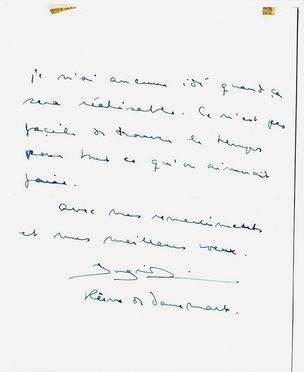 je n'ai aucune idé quand ça
sera réalisable. Ce n'est pas
facile de trouver le temps
pour tout ce qu'on aimerait
faire.
avec mes remerciments
et mes meilleurs voeux.
Ingrid.
Reine de Danemark.